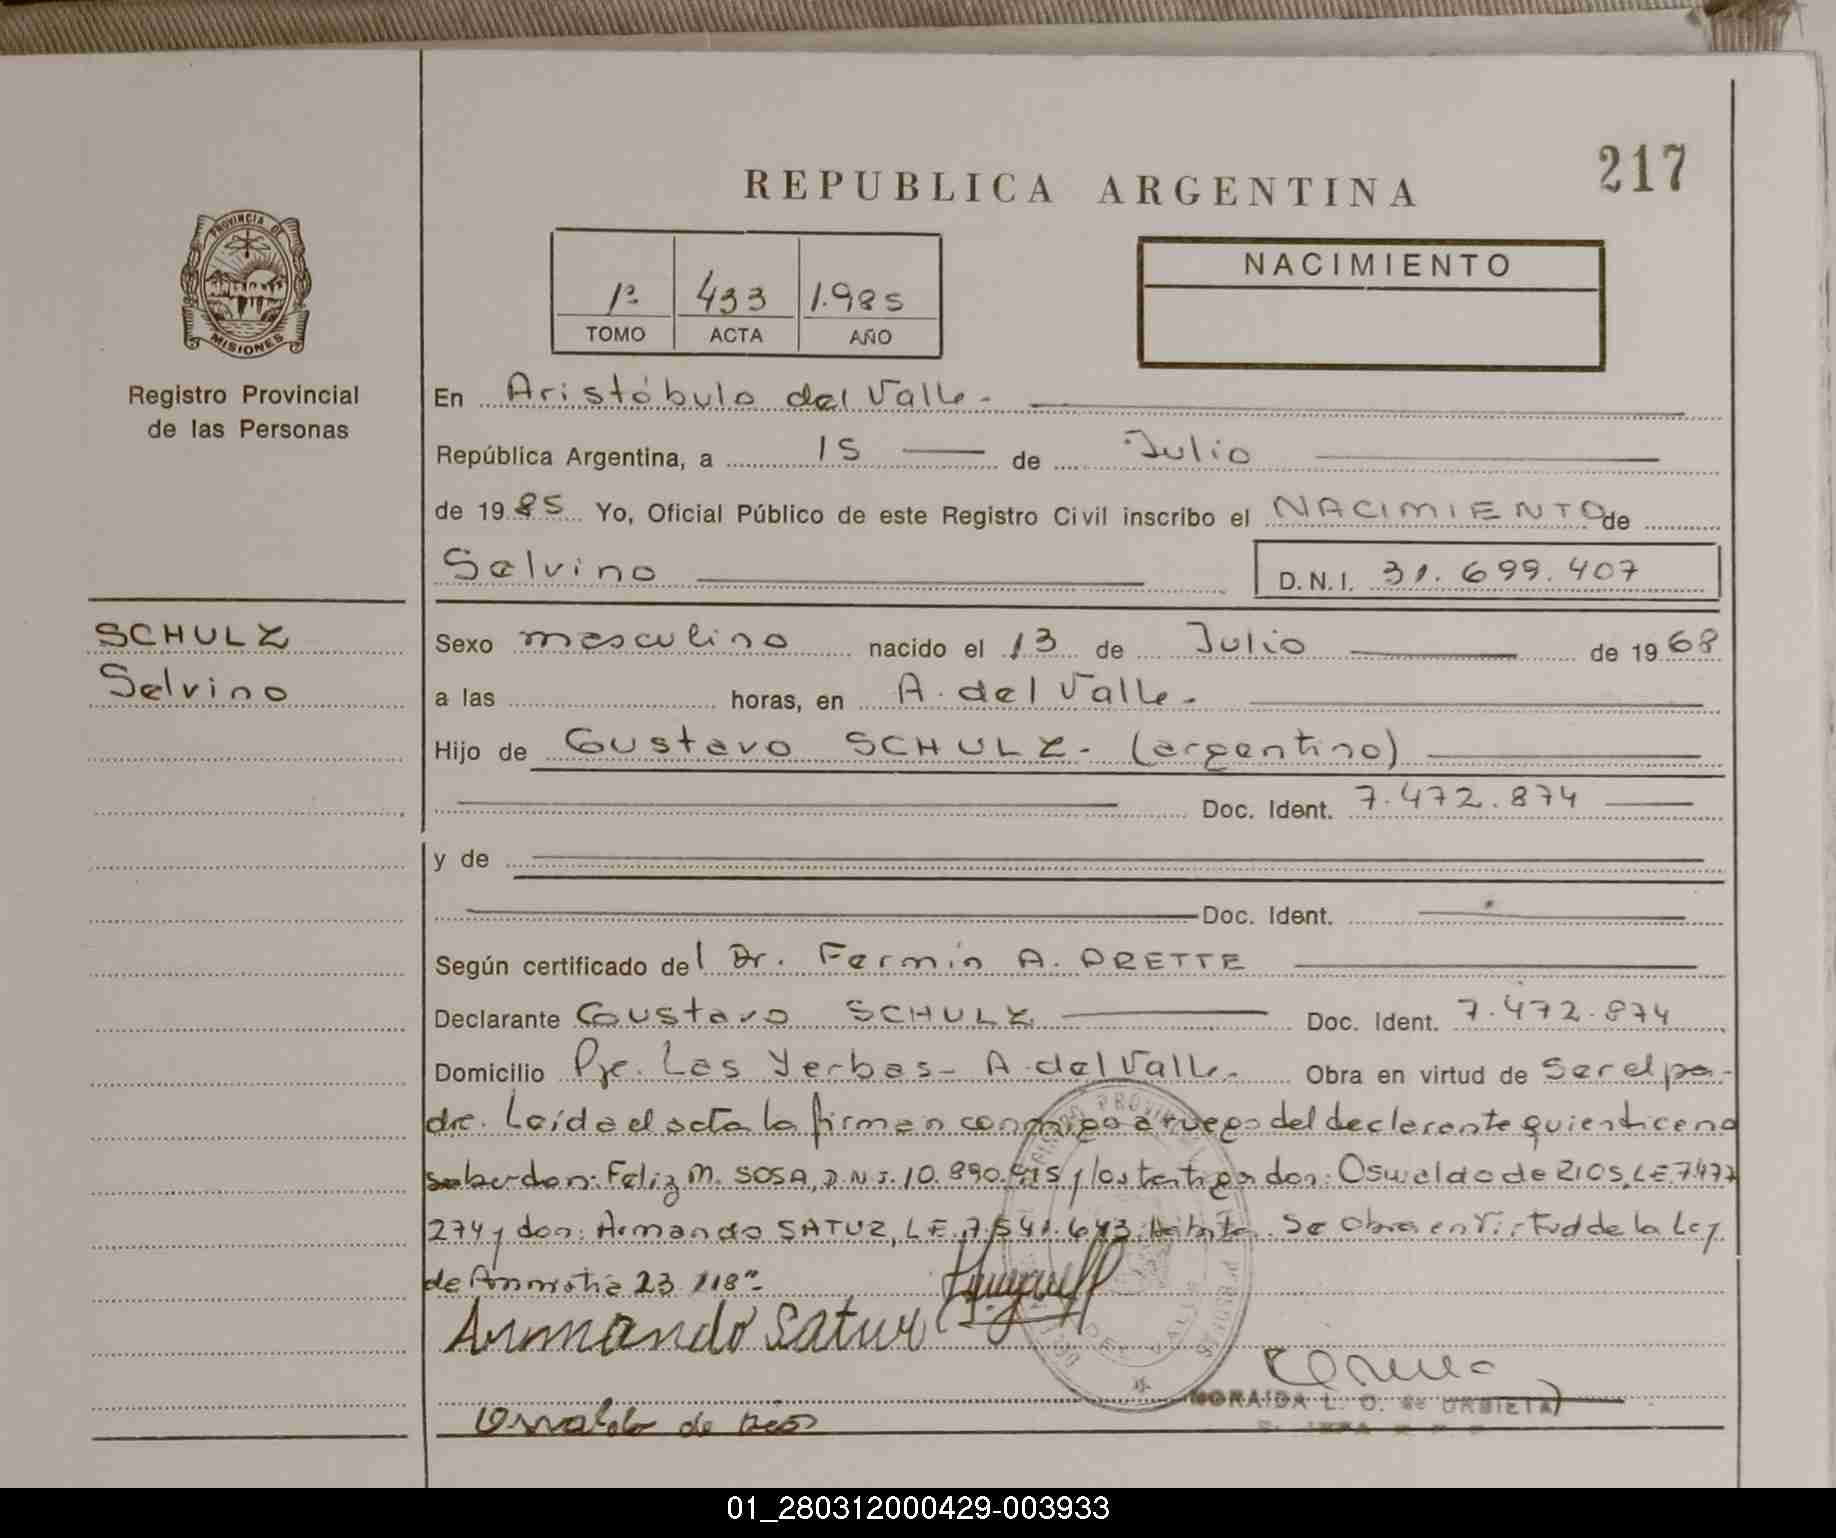 217
REPUBLICA ARGENTINA
PROVINCIA DE
MISIONES
Registro Provincial
de las Personas
1º 433 1.985
TOMO ACTA AÑO
NACIMIENTO
En Aristóbulo del Valle.
República Argentina, a 15 de Julio
de 19 85 Yo, Oficial Público de este Registro Civil inscribo el NACIMIENTO de
Selvino D.N.I. 31.699.407
SCHULZ
Selvino
Sexo masculino nacido el 13 de Julio de 19 68
a las horas, en A. del Valle.
Hijo de Gustavo SCHULZ. (argentino)
Doc. Ident. 7.472.874
y de
Doc. Ident.
Según certificado del Dr. Fermin A. PRETTE
Declarante Gustavo SCHULZ Doc. Ident. 7.472.874
Domicilio Pje. Las Yerbas - A. del Valle. Obra en virtud de Ser el pa-
dre. Leída el acta la firman conmigo a ruego del declarante quien dice no
saber don: Feliz M. SOSA, D.N.I. 10.890. y los testigos don: Oswaldo de RIOS, L.E. 7.477
274 y don: Armando SATUR, L.E. 7.541.643. Se Obra en Virtud de la Ley
de Amnistia 23.118"
Armando Satur
Osvaldo de Rios
MORAIDA L. O. de URBIETA
01_280312000429-003933